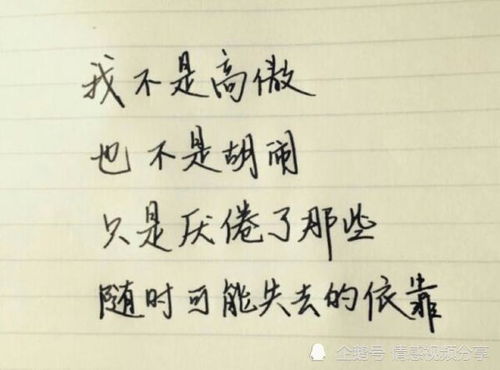 我不是高傲
也不是胡闹
只是厌倦了那些
随时可能失去的依靠
企鹅号 情感视频分享